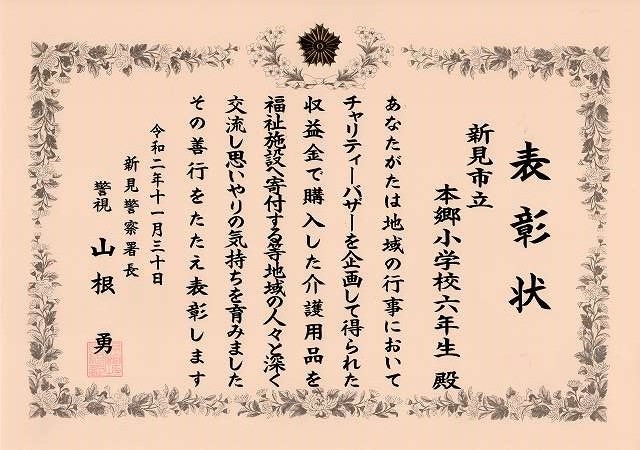 表彰状
新見市立
本郷小学校六年生 殿
あなたがたは地域の行事において
チャリティーバザーを企画して得られた
収益金で購入した介護用品を
福祉施設へ寄付する等地域の人々と深く
交流し思いやりの気持ちを育みました
その善行をたたえ表彰します
令和二年十一月三十日
新見警察署長
警視 山根 勇